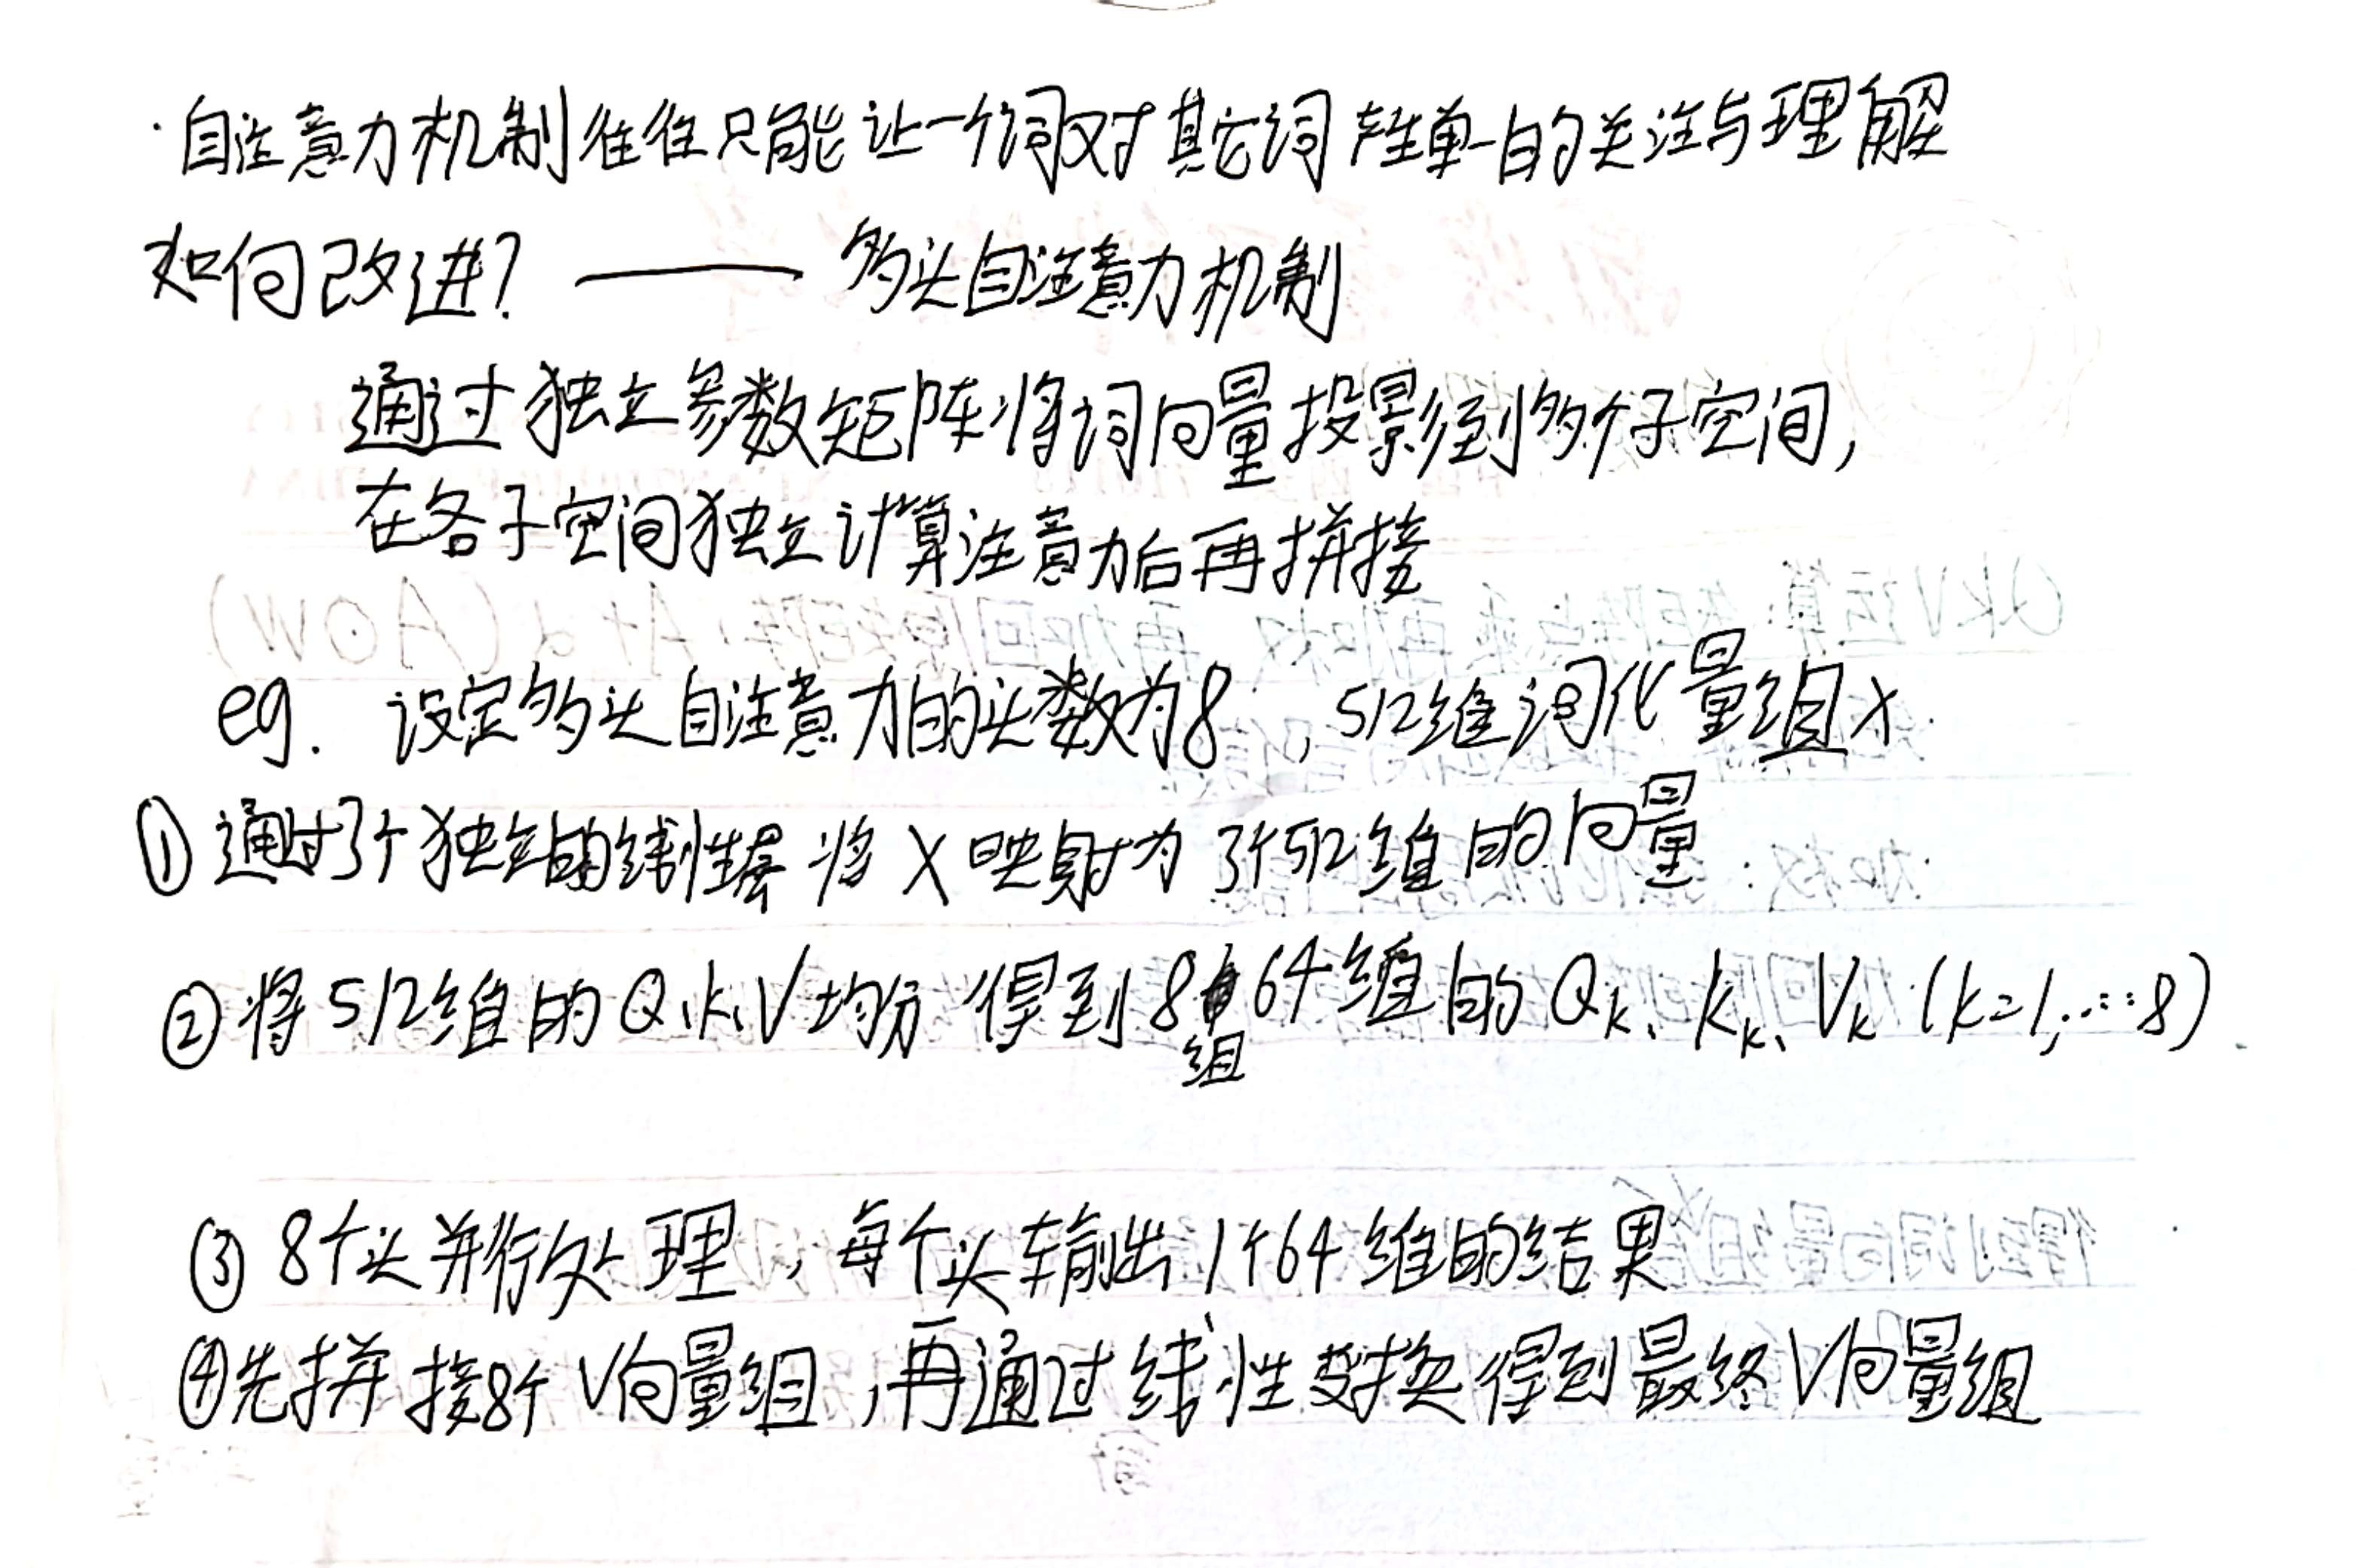 ·自注意力机制往往只能让一个词对其它词产生单一的关注与理解
如何改进? —— 多头自注意力机制
通过独立参数矩阵将词向量投影到多个子空间,
在各子空间独立计算注意力后再拼接
eg. 设定多头自注意力的头数为8 , 512维词化量组X
①通过3个独立的线性层将X映射为3个512维的向量
②将512维的Q、K、V均分得到8组64维的Qk、Kk、Vk (k=1,…8)
③8个头并行处理,每个头输出1个64维的结果
④先拼接8个V向量组,再通过线性变换得到最终V向量组